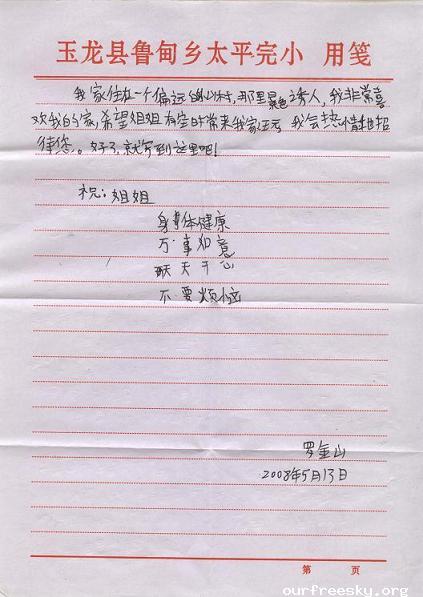 玉龙县鲁甸乡太平完小 用笺
我家住在一个偏远的山村,那里景色诱人,我非常喜
欢我的家,希望姐姐有空时常来我家玩 我会热情地招
待您。好了,就写到这里吧!
祝:姐姐
身体健康
万事如意
天天开心
不要烦恼
罗金山
2008年5月13日
第 页
ourfreesky.org